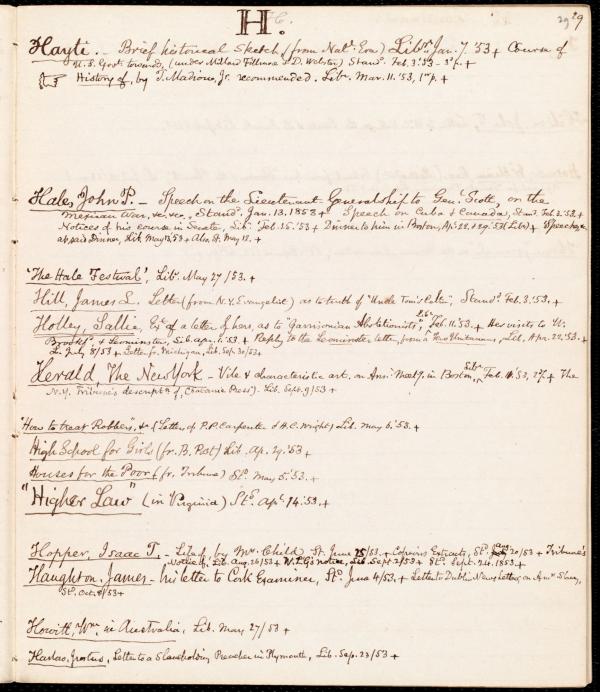 H.
29 29
Hayti. - Brief historical Sketch (from Natl. Era) Libr. Jan. 7. '53 + Course of
U.S. Govt. towards, (under Millard Fillmore & D. Webster) Stand. Feb. 3. '53 - 3d p. +
History of, by T. Madiou, Jr. recommended. Libr. Mar. 11. '53, 1st p. +
Hale, John P. - Speech on the Lieutenant Generalship to Genl. Scott, on the
Mexican War, &c. &c., Stand. Jan. 13. 1853 + Speech on Cuba & Canada, Stand. Feb. 2. '53. +
Notices of his course in Senate, Lib. Feb. 25. '53 + Dinner to him in Boston, Ap. 22, & 29. '53 (Lib) + Speeches
at said Dinner, Lib. May 13, 53 + Also, St. May 12. +
'The Hale Festival', Lib. May 27 / 53. +
Hill, James L. Letter (from N.Y. Evangelist) as to truth of "Uncle Tom's Cabin", Stand. Feb. 3. '53. +
Holley, Sallie, Ext. of a letter of hers, as to "Garrisonian Abolitionists", Lib. Feb. 11. '53. + Her visits to W.
Brookfd. & Leominster, Lib. Apr. 1. '53. + Reply to the Leominster letter, from a Unitarian, Lib. Apr. 22. '53. +
L. July 8/53 + Letter fr. Michigan, Lib. Sep. 30/53 +
Herald, The New York - Vile & characteristic art. on Ann. Meetg. in Boston, Libr. Feb. 4. 53, 2d p. + The
N.Y. Tribune's descriptn. of (Satanic Press) - Lib. Sept. 9/53 +
"How to treat Robbers", &c (Letter, of P.P. Carpenter & H.C. Wright) Lib. May 6. '53. +
High School for Girls (fr. B. Post) Lib. Ap. 29. '53. +
Houses for the Poor (fr. Tribune) Sd. May 5. '53. +
"Higher Law" (in Virginia) Sd. Apl. 14. '53. +
Hopper, Isaac T. - Life of, by Mrs. Child St. June 25/53. + Copious Extracts, St. Aug 20/53 + Tribune's
Notice of, Lib. Aug. 26/53 + W.L.G's notice, Lib. Sept 2/53 + St. Sept. 24. 1853. +
Haughton, James - his letter to Cork Examiner, Sd. June 4/53. + Letter to Dublin News Letter, on Amn. Slavery,
Sd. Oct. 8/53 +
Howitt, Wm. in Australia, Lib. May 27 / 53 +
Harlow, Justus, Letter to a Slaveholding Preacher in Plymouth, Lib. Sep. 23/53 +